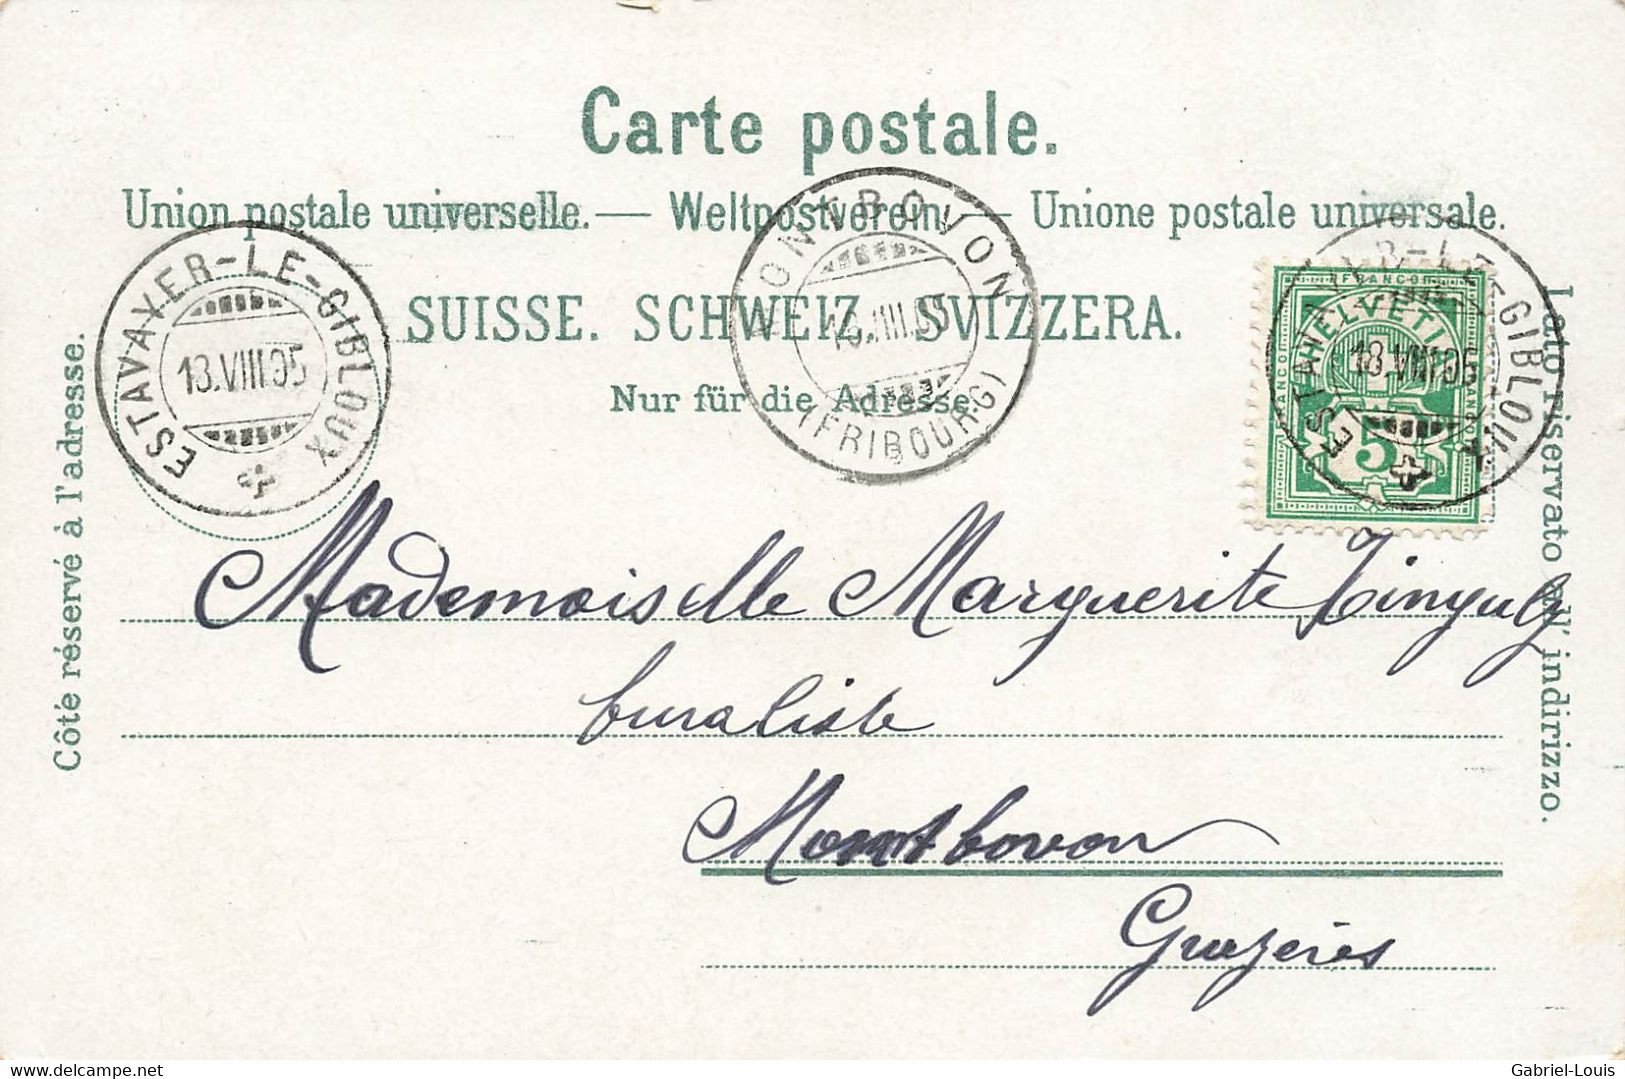 Carte postale.
Union postale universelle. — Weltpostverein. — Unione postale universale.
SUISSE. SCHWEIZ. SVIZZERA.
Nur für die Adresse.
Côté réservé à l'adresse.
Lato riservato all' indirizzo.
ESTAVAYER-LE-GIBLOUX
18.VIII.05
MONTBOVON
(FRIBOURG)
FRANCO
HELVETIA
FRANCO
FRANCO
5
ESTAVAYER-LE-GIBLOUX
18.VIII.05
Mademoiselle Marguerite Tinguely
buraliste
Montbovon
Gruyères
www.delcampe.net
Gabriel-Louis